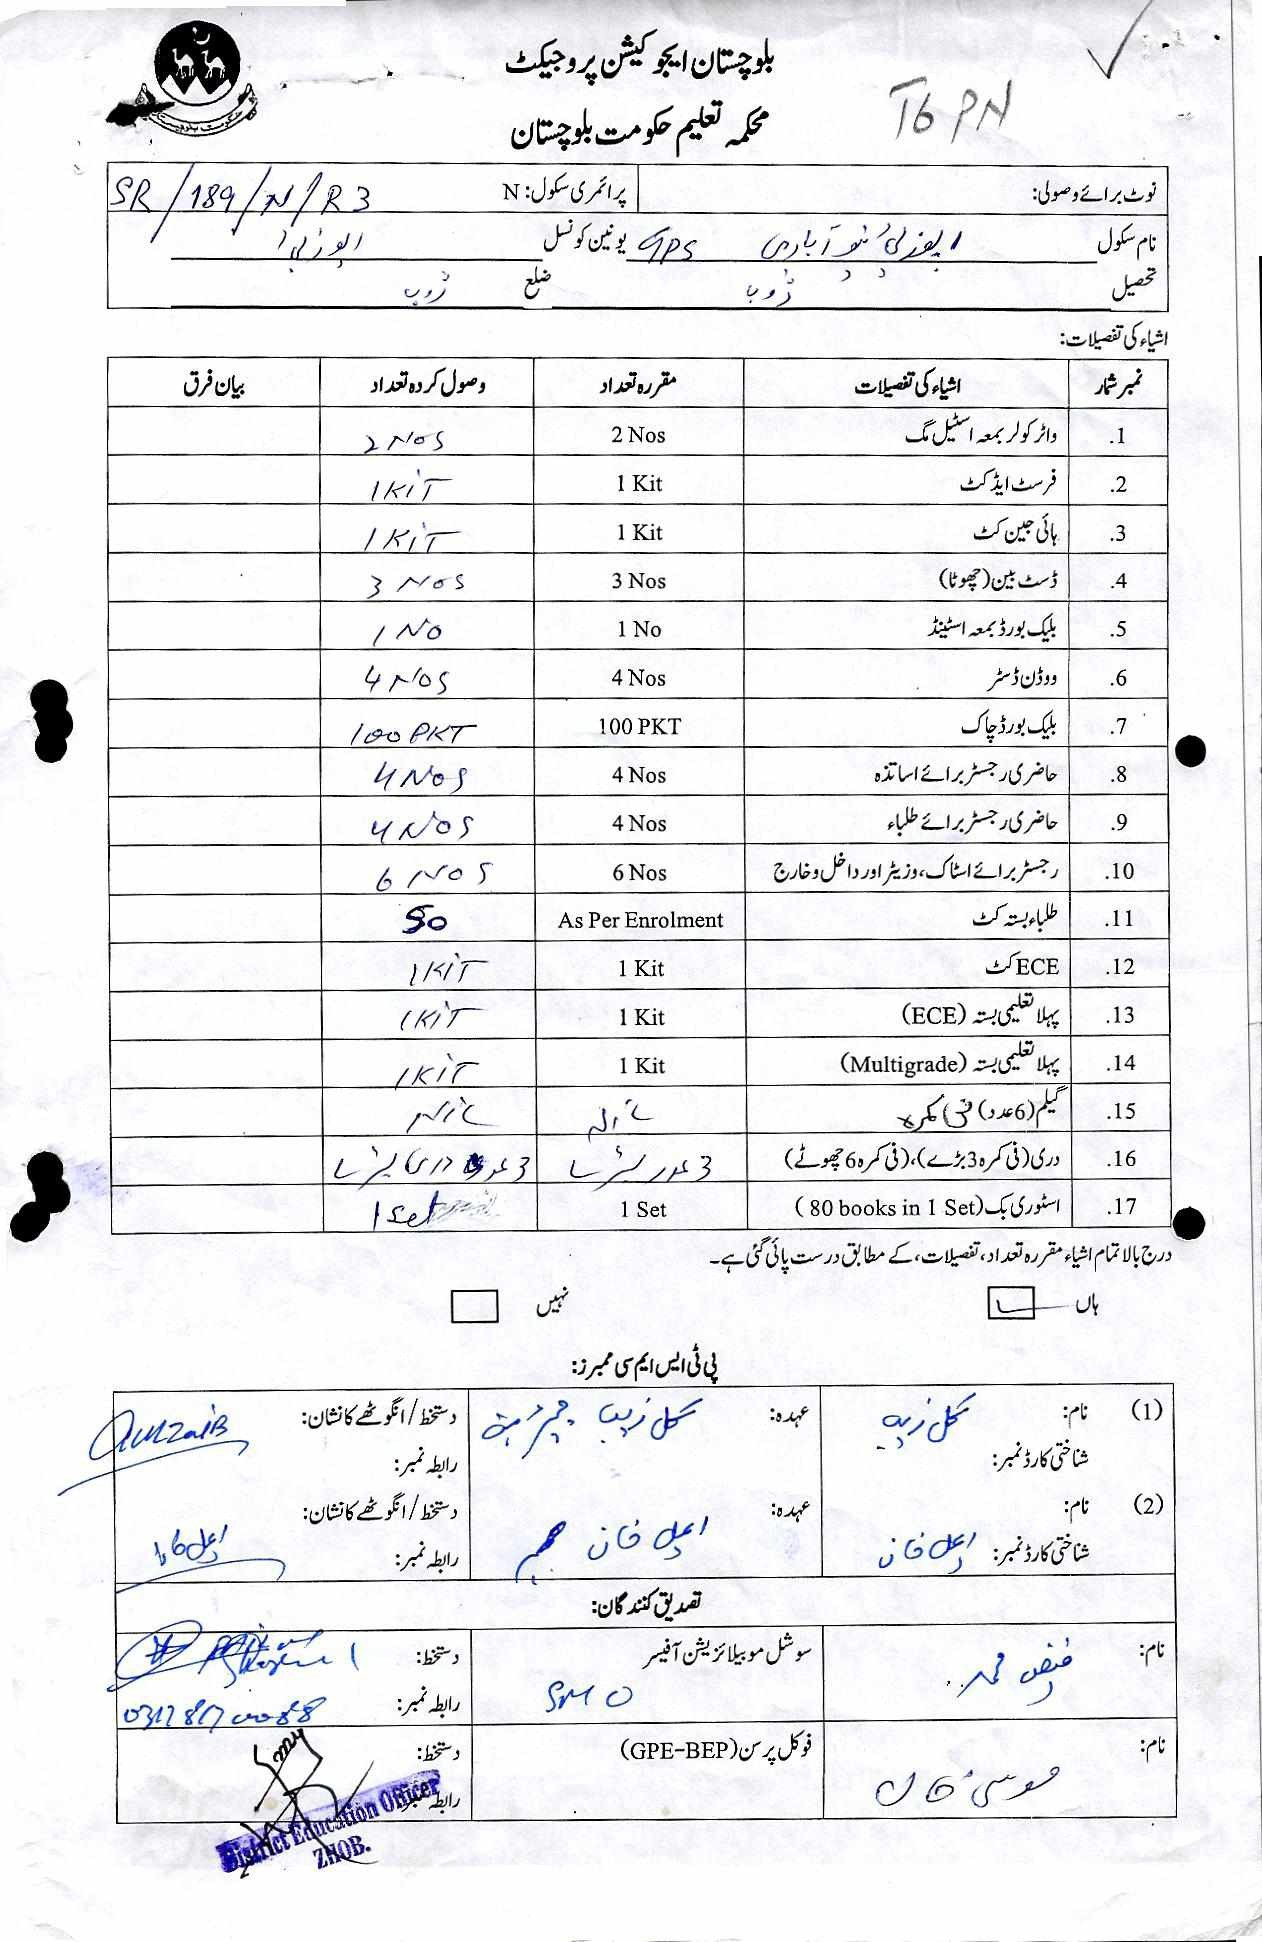 بلوچستان ایجوکیشن پروجیکٹ
محکمہ تعلیم حکومت بلوچستان
T6 PN
نوٹ برائے وصولی: پرائمری سکول: N SR/189/N/R3
نام سکول GPS یونین کونسل
تحصیل ژوب ضلع ژوب
اشیاء کی تفصیلات:
نمبر شمار اشیاء کی تفصیلات مقررہ تعداد وصول کردہ تعداد بیان فرق
1. واٹر کولر بمعہ اسٹیل مگ 2 Nos 2 Nos
2. فرسٹ ایڈ کٹ 1 Kit 1 KiT
3. ہائی جین کٹ 1 Kit 1 KiT
4. ڈسٹ بین (چھوٹا) 3 Nos 3 Nos
5. بلیک بورڈ بمعہ اسٹینڈ 1 No 1 No
6. ووڈن ڈسٹر 4 Nos 4 Nos
7. بلیک بورڈ چاک 100 PKT 100 PKT
8. حاضری رجسٹر برائے اساتذہ 4 Nos 4 Nos
9. حاضری رجسٹر برائے طلباء 4 Nos 4 Nos
10. رجسٹر برائے اسٹاک، وزیٹر اور داخل و خارج 6 Nos 6 Nos
11. طلباء بستہ کٹ As Per Enrolment 50
12. ECE کٹ 1 Kit 1 KiT
13. پہلا تعلیمی بستہ (ECE) 1 Kit 1 KiT
14. پہلا تعلیمی بستہ (Multigrade) 1 Kit 1 KiT
15. گیلم (6 عدد) فی کمرہ NiL
16. دری (فی کمرہ 3 بڑے)، (فی کمرہ 6 چھوٹے) 3 عدد 3 عدد دری
17. اسٹوری بک (80 books in 1 Set) 1 Set 1 Set
درج بالا تمام اشیاء مقررہ تعداد، تفصیلات، کے مطابق درست پائی گئی ہے۔
ہاں نہیں
پی ٹی ایس ایم سی ممبرز:
(1) نام: گل زیب عہدہ: گل زیب چیرمین دستخط/انگوٹھے کا نشان: AURZaiB
شناختی کارڈ نمبر: رابطہ نمبر:
(2) نام: عہدہ: خان ممبر دستخط/انگوٹھے کا نشان:
شناختی کارڈ نمبر: خان رابطہ نمبر:
تصدیق کنندگان:
نام: فیض محمد سوشل موبیلائزیشن آفیسر SMO دستخط:
رابطہ نمبر: 03178170088
نام: موسیٰ خان فوکل پرسن (GPE-BEP) دستخط:
رابطہ نمبر:
District Education Officer
ZHOB.